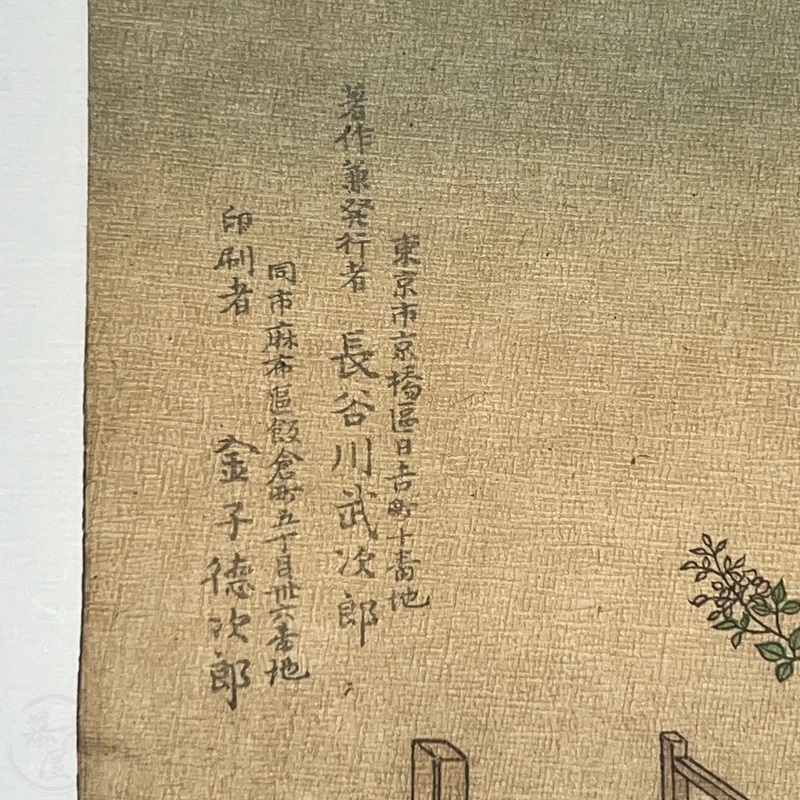 東京市京橋區日吉町十番地
著作兼発行者 長谷川武次郎
同市麻布區飯倉町五丁目卅六番地
印刷者 金子徳次郎